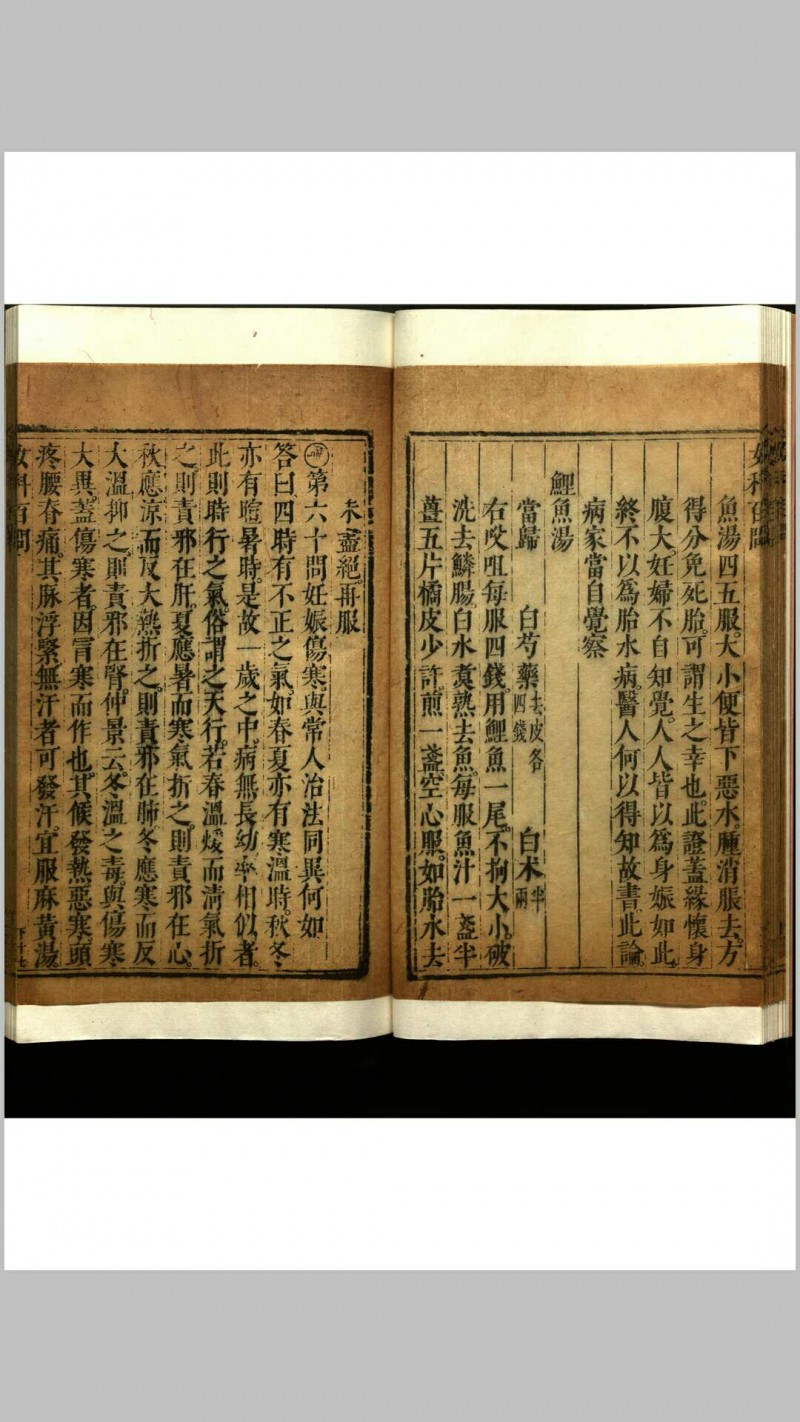 女科百問
魚湯四五服大小便皆下惡水腫消脹去方
得分免死胎可謂生之幸也此證蓋緣懷身
腹大妊婦不自知覺人人皆以為身娠如此
終不以為胎水病醫人何以得知故書此論
病家當自覺察
鯉魚湯
當歸 白芍藥去皮各四錢 白朮半兩
右㕮咀每服四錢用鯉魚一尾不拘大小破
洗去鱗腸白水煑熟去魚每服魚汁一盞半
薑五片橘皮少許煎一盞空心服如胎水去
未盡絕再服
第六十問妊娠傷寒與常人治法同異何如
答曰四時有不正之氣如春夏亦有寒溫時秋冬
亦有暄暑時是故一歲之中病無長幼率相似者
此則時行之氣俗謂之天行若春溫煖而清氣折
之則責邪在肝夏應暑而寒氣折之則責邪在心
秋應涼而反大熱折之則責邪在肺冬應寒而反
大溫抑之則責邪在腎仲景云冬溫之毒與傷寒
大異蓋傷寒者因冒寒而作也其候發熱惡寒頭
疼腰脊痛其脉浮緊無汗者可發汗宜服麻黃湯
女科百問